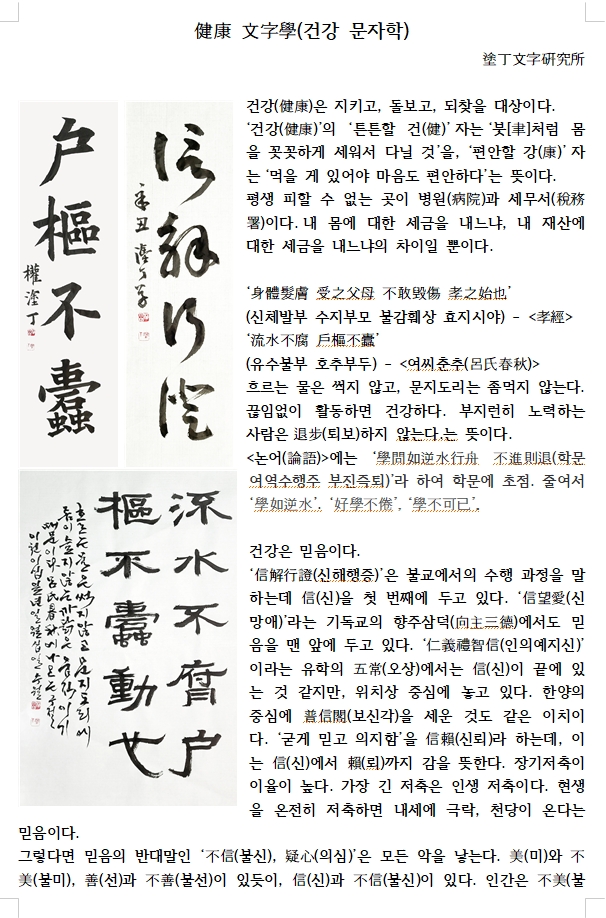 健康 文字學(건강 문자학)
塗丁文字研究所
건강(健康)은 지키고, 돌보고, 되찾을 대상이다.
‘건강(健康)’의 ‘튼튼할 건(健)’ 자는 ‘붓[聿]처럼 몸
을 꼿꼿하게 세워서 다닐 것’을, ‘편안할 강(康)’ 자
는 ‘먹을 게 있어야 마음도 편안하다’는 뜻이다.
평생 피할 수 없는 곳이 병원(病院)과 세무서(稅務
署)이다. 내 몸에 대한 세금을 내느냐, 내 재산에
대한 세금을 내느냐의 차이일 뿐이다.
‘身體髮膚 受之父母 不敢毁傷 孝之始也’
(신체발부 수지부모 불감훼상 효지시야) - <孝經>
‘流水不腐 戶樞不蠹’
(유수불부 호추부두) - <여씨춘추(呂氏春秋)>
흐르는 물은 썩지 않고, 문지도리는 좀먹지 않는다.
끊임없이 활동하면 건강하다. 부지런히 노력하는
사람은 退步(퇴보)하지 않는다.는 뜻이다.
<논어(論語)>에는 ‘學問如逆水行舟 不進則退(학문
여역수행주 부진즉퇴)’라 하여 학문에 초점. 줄여서
‘學如逆水’. ‘好學不倦’, ‘學不可已’.
건강은 믿음이다.
‘信解行證(신해행증)’은 불교에서의 수행 과정을 말
하는데 信(신)을 첫 번째에 두고 있다. ‘信望愛(신
망애)’라는 기독교의 향주삼덕(向主三德)에서도 믿
음을 맨 앞에 두고 있다. ‘仁義禮智信(인의예지신)’
이라는 유학의 五常(오상)에서는 信(신)이 끝에 있
는 것 같지만, 위치상 중심에 놓고 있다. 한양의
중심에 普信閣(보신각)을 세운 것도 같은 이치이
다. ‘굳게 믿고 의지함’을 信賴(신뢰)라 하는데, 이
는 信(신)에서 賴(뢰)까지 감을 뜻한다. 장기저축이
이율이 높다. 가장 긴 저축은 인생 저축이다. 현생
을 온전히 저축하면 내세에 극락, 천당이 온다는
믿음이다.
그렇다면 믿음의 반대말인 ‘不信(불신), 疑心(의심)’은 모든 악을 낳는다. 美(미)와 不
美(불미), 善(선)과 不善(불선)이 있듯이, 信(신)과 不信(불신)이 있다. 인간은 不美(불
戶樞不蠹
權塗丁
信解行證
辛丑 塗丁
流水不腐戶
樞不蠹動也